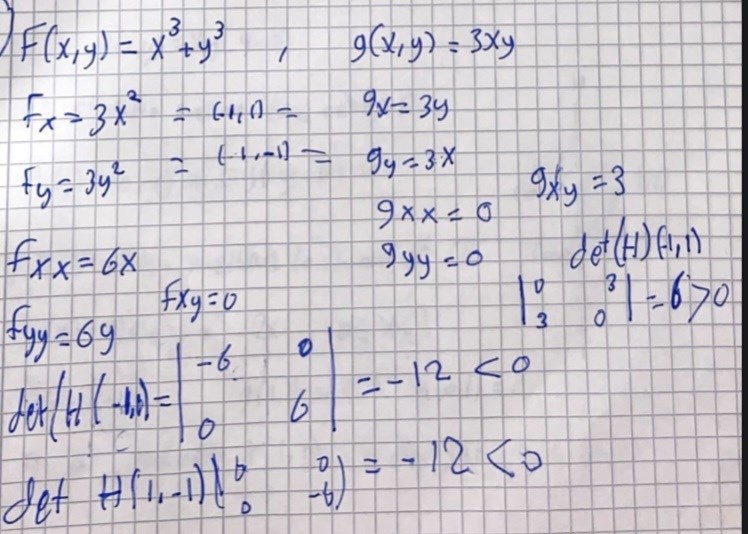 F(x,y) = x³+y³ , g(x,y) = 3xy
fx = 3x² = (-1,1) = gx = 3y
fy = 3y² = (-1,-1) = gy = 3x
gxy = 3
gxx = 0
fxx = 6x gyy = 0 det(H)(-1,1)
fxy = 0 |0 3; 3 0| = 6 > 0
fyy = 6y
det(H(-1,1) = |-6 0; 0 6| = -12 < 0
det H(1,-1) |6 0; 0 -6) = -12 < 0